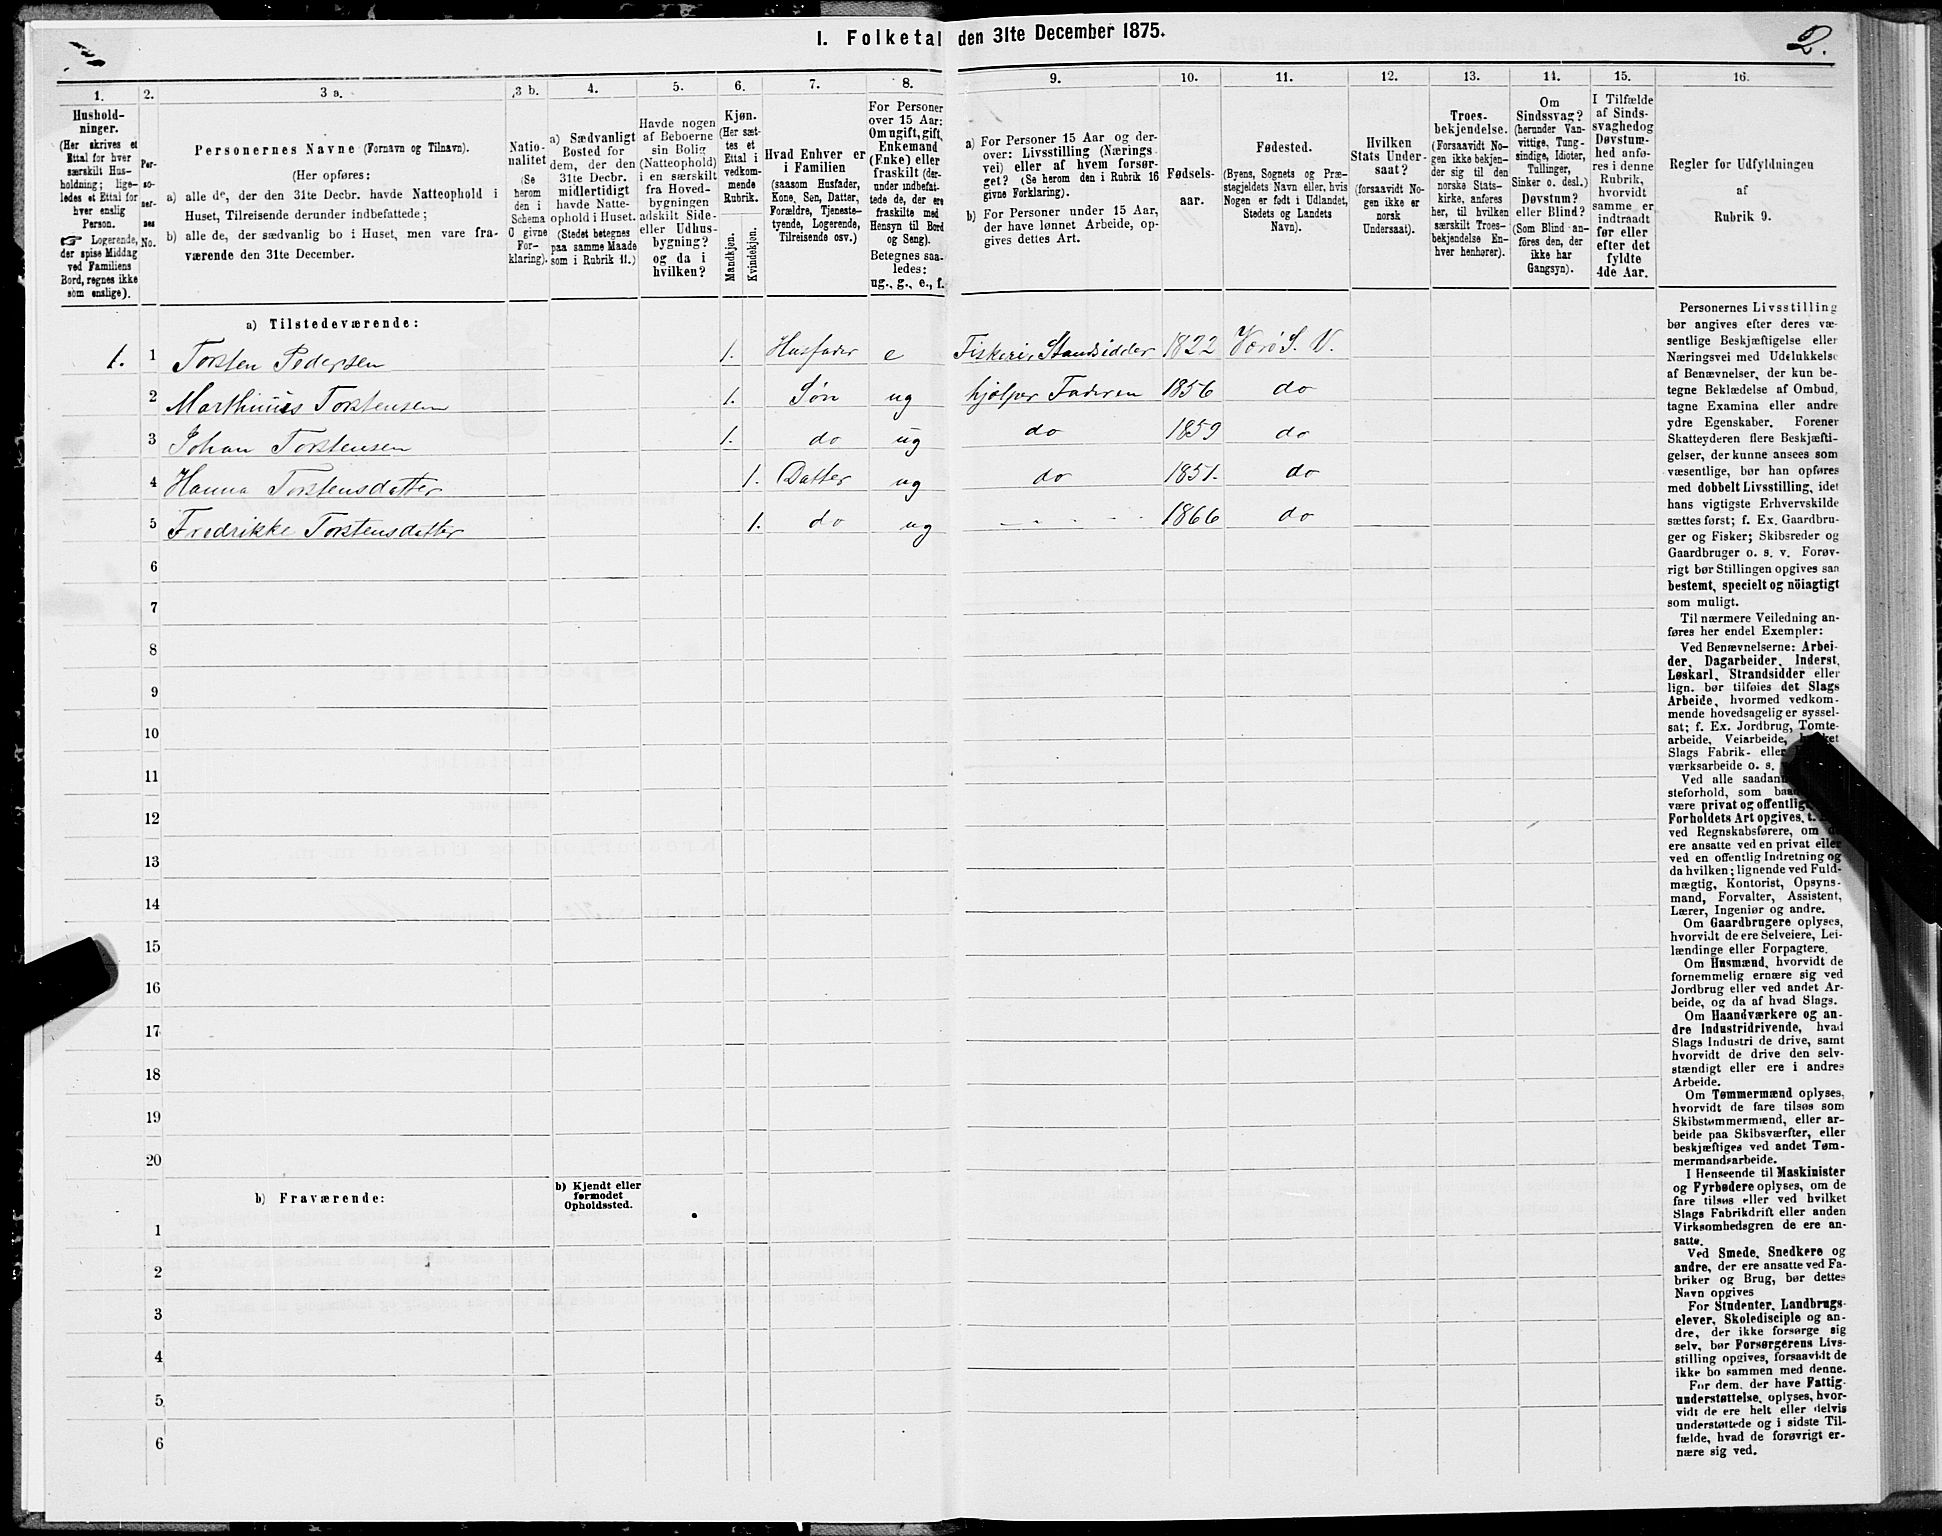 I. Folketal den 31te December 1875.
2.
1.
2.
3 a.
3 b.
4.
5.
6.
7.
8.
9.
10.
11.
12.
13.
14.
15.
16.
Hushold-
ninger.
(Her skrives et
Ettal for hver
særskilt Hus-
holdning; lige-
ledes et Ettal for
hver enslig
Person.
☞ Logerende,
der spise Middag
ved Familiens
Bord, regnes ikke
som enslige).
Per-
so-
ner-
nes
No.
Personernes Navne (Fornavn og Tilnavn).
(Her opføres:
a) alle de, der den 31te Decbr. havde Natteophold i
Huset, Tilreisende derunder indbefattede;
b) alle de, der sædvanlig bo i Huset, men vare fra-
værende den 31te December.
Natio-
nalitet
(Se
herom
den i
Schema
O givne
For-
klaring).
a) Sædvanligt
Bosted for
dem, der den
31te Decbr.
midlertidigt
havde Natte-
ophold i Huset.
(Stedet betegnes
paa samme Maade
som i Rubrik 11.)
Havde nogen
af Beboerne
sin Bolig
(Natteophold)
i en særskilt
fra Hoved-
bygningen
adskilt Side-
eller Udhus-
bygning?
og da i
hvilken?
Kjøn.
(Her sæt-
tes et
Ettal i
vedkom-
mende
Rubrik.
Mandkjøn.
Kvindekjøn.
Hvad Enhver er
i Familien
(saasom Husfader,
Kone, Søn, Datter,
Forældre, Tjeneste-
tyende, Logerende,
Tilreisende osv.)
For Personer
over 15 Aar:
Om ugift, gift,
Enkemand
(Enke) eller
fraskilt (der-
under indbefat-
tede de, der ere
fraskilte med
Hensyn til Bord
og Seng).
Betegnes saa-
ledes:
ug., g., e., f.
a) For Personer 15 Aar og der-
over: Livsstilling (Nærings-
vei) eller af hvem forsør-
get? (Se herom den i Rubrik 16
givne Forklaring).
b) For Personer under 15 Aar,
der have lønnet Arbeide, op-
gives dettes Art.
Fødsels-
aar.
Fødested.
(Byens, Sognets og Præ-
stegjeldets Navn eller, hvis
Nogen er født i Udlandet,
Stedets og Landets
Navn).
Hvilken
Stats Under-
saat?
(forsaavidt No-
gen ikke er
norsk
Undersaat).
Troes-
bekjendelse.
(Forsaavidt No-
gen ikke bekjen-
der sig til den
norske Stats-
kirke, anføres
her, til hvilken
særskilt Troes-
bekjendelse En-
hver henhører).
Om
Sindssvag?
(herunder Van-
vittige, Tung-
sindige, Idioter,
Tullinger,
Sinker o. desl.)
Døvstum?
eller Blind?
(Som Blind an-
føres den, der
ikke har
Gangsyn).
I Tilfælde
af Sinds-
svaghed og
Døvstum-
hed anfø-
res i denne
Rubrik,
hvorvidt
samme er
indtraadt
før eller
efter det
fyldte
4de Aar.
Regler for Udfyldningen
af
Rubrik 9.
a) Tilstedeværende:
1. 1 Torsten Pedersen 1. Husfader e Fiskeri, Strandsidder 1822 Værø S. V.
2 Marthinus Torstensen 1. Søn ug hjelper Faderen 1856 do
3 Johan Torstensen 1. do ug do 1859 do
4 Hanna Torstensdatter 1. Datter ug do 1851. do
5 Fredrikke Torstensdatter 1. do ug - - - - 1866 do
6
7
8
9
10
11
12
13
14
15
16
17
18
19
20
b) Fraværende:
b) Kjendt eller
formodet
Opholdssted.
1
2
3
4
5
6
Personernes Livsstilling
bør angives efter deres væ-
sentlige Beskjæftigelse eller
Næringsvei med Udelukkelse
af Benævnelser, der kun be-
tegne Beklædelse af Ombud,
tagne Examina eller andre
ydre Egenskaber. Forener
Skatteyderen flere Beskjæfti-
gelser, der kunne ansees som
væsentlige, bør han opføres
med dobbelt Livsstilling, idet
hans vigtigste Erhvervskilde
sættes først; f. Ex. Gaardbru-
ger og Fisker; Skibsreder og
Gaardbruger o. s. v. Forøv-
rigt bør Stillingen opgives saa
bestemt, specielt og nöiagtigt
som muligt.
Til nærmere Veiledning an-
føres her endel Exempler:
Ved Benævnelserne: Arbei-
der, Dagarbeider, Inderst,
Løskarl, Strandsidder eller
lign. bør tilføies det Slags
Arbeide, hvormed vedkom-
mende hovedsagelig er syssel-
sat; f. Ex. Jordbrug, Tomte-
arbeide, Veiarbeide,
Slags Fabrik- eller
værksarbeide o. s.
Ved alle
steforhold, som
være privat og
Forholdets Art opgives,
ved Regnskabsførere, om
ere ansatte ved en privat eller
ved en offentlig Indretning og
da hvilken; lignende ved Fuld-
mægtig, Kontorist, Opsyns-
mand, Forvalter, Assistent,
Lærer, Ingeniør og andre.
Om Gaardbrugere oplyses,
hvorvidt de ere Selveiere, Lei-
lændinge eller Forpagtere.
Om Husmænd, hvorvidt de
fornemmelig ernære sig ved
Jordbrug eller ved andet Ar-
beide, og da af hvad Slags.
Om Haandværkere og an-
dre Industridrivende, hvad
Slags Industri de drive, samt
hvorvidt de drive den selv-
stændigt eller ere i andres
Arbeide.
Om Tømmermænd oplyses,
hvorvidt de fare tilsøs som
Skibstømmermænd, eller ar-
beide paa Skibsværfter, eller
beskjæftiges ved andet Tøm-
mermandsarbeide.
I Henseende til Maskinister
og Fyrbødere oplyses, om de
fare tilsøs eller ved hvilket
Slags Fabrikdrift eller anden
Virksomhedsgren de ere an-
satte.
Ved Smede, Snedkere og
andre, der ere ansatte ved Fa-
briker og Brug, bør dettes
Navn opgives
For Studenter, Landbrugs-
elever, Skoledisciple og an-
dre, der ikke forsørge sig
selv, bør Forsørgerens Livs-
stilling opgives, forsaavidt de
ikke bo sammen med denne.
For dem, der have Fattig-
understøttelse, oplyses, hvor-
vidt de ere helt eller delvis
understøttede og i sidste Til-
fælde, hvad de forøvrigt er-
nære sig ved.